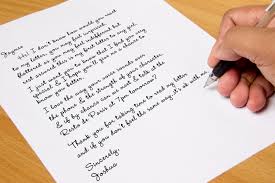 Hi! I don't know how would you
to my letter, you may feel surprised,
flattered or you may feel indifferent but
rest assured this is letter to my girl
I just want you to know that I find you very
special & I hope you'll give me a chance to
know you better.
I love the way your voice sounds over
the phone & the strength of your character.
& if by chance can we meet & talk at the
Resto de Paris at 7pm tomorrow?
Thank you for taking time to read my letter,
and if you don't feel the same way it's ok with me
Sincerely,
Joshua